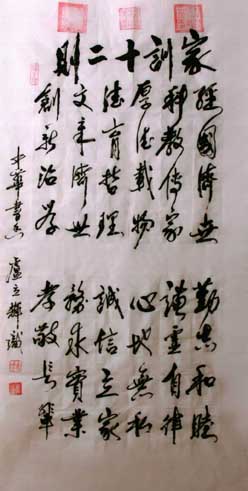 家訓十二則
經國濟世 勤和睦
科教傳家 謙虛自律
厚德載物 心地無私
德育哲理 誠信立家
文來濟世 務求實業
創新治學 孝敬長輩
中華書 盧